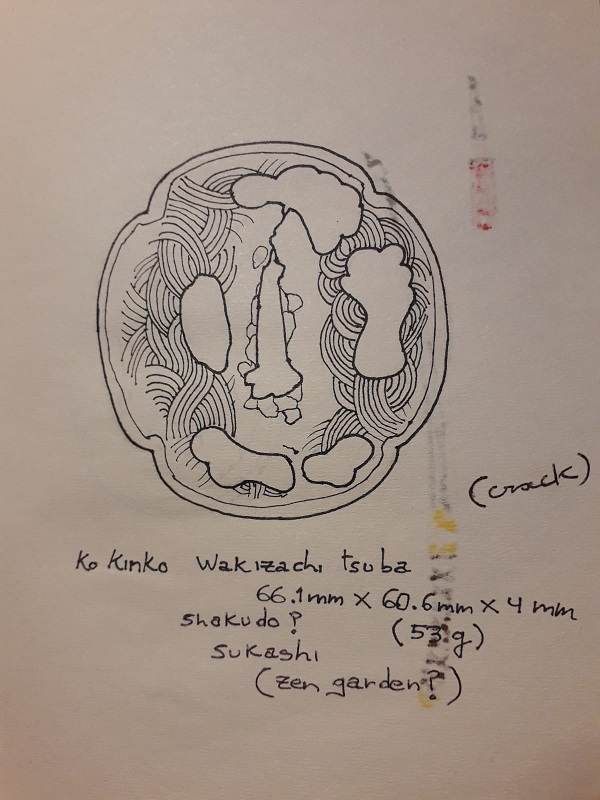 (crack)
Ko Kinko Wakizachi tsuba
66.1mm x 60.6mm x 4 mm
shakudo? (53 g)
sukashi
(zen garden?)